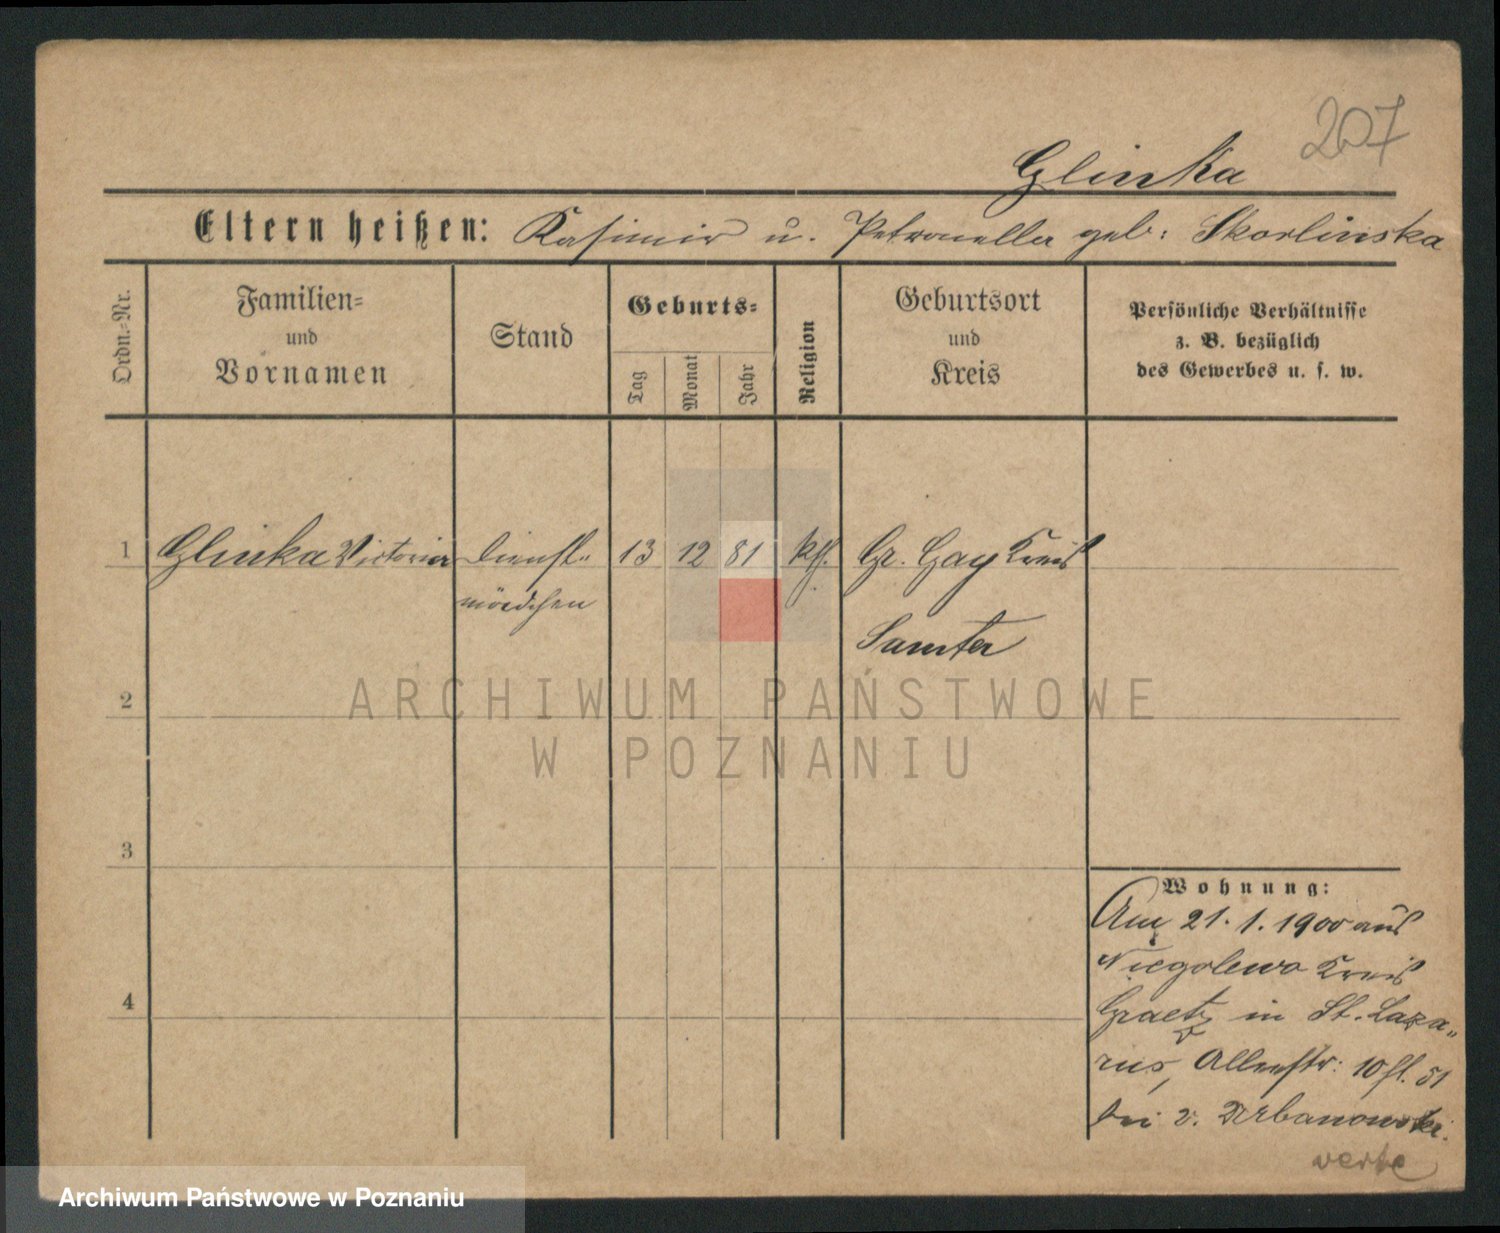 207
Glinka
Eltern heißen: Kasimir u. Petronella geb: Skorlinska
Ordn.-Nr.
Familien-
und
Vornamen
Stand
Geburts-
Tag
Monat
Jahr
Religion
Geburtsort
und
Kreis
Persönliche Verhältnisse
z. B. bezüglich
des Gewerbes u. s. w.
1 Glinka Victoria Dienst- 13 12 81 kth. Gr. Gay Kreis
mädchen
Samter
2
3
4
Wohnung:
Am 21.1.1900 aus
Niegolewo Kreis
Graetz in St. Laza-
rus, 10 51
bei v. Urbanowski.
verte
ARCHIWUM PAŃSTWOWE
W POZNANIU
Archiwum Państwowe w Poznaniu